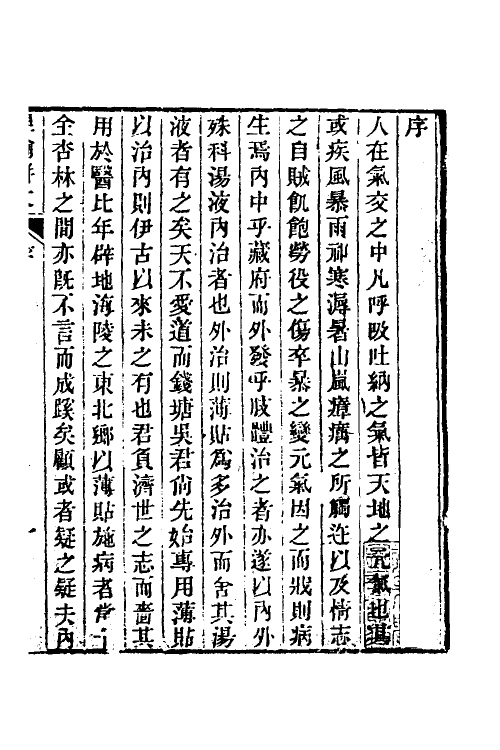 序
人在氣交之中凡呼吸吐納之氣皆天地之元氣也其
或疾風暴雨祁寒溽暑山嵐瘴癘之所觸迕以及情志
之自賊飢飽勞役之傷卒暴之變元氣因之而戕則病
生焉內中乎藏府而外發乎肢體治之者亦遂以內外
殊科湯液內治者也外治則薄貼為多治外而舍其湯
液者有之矣天不愛道而錢塘吳君尙先始專用薄貼
以治內則伊古以來未之有也君負濟世之志而嗇其
用於醫比年辟地海陵之東北鄉以薄貼施病者
全杏林之間亦旣不言而成蹊矣顧或者疑之疑夫內